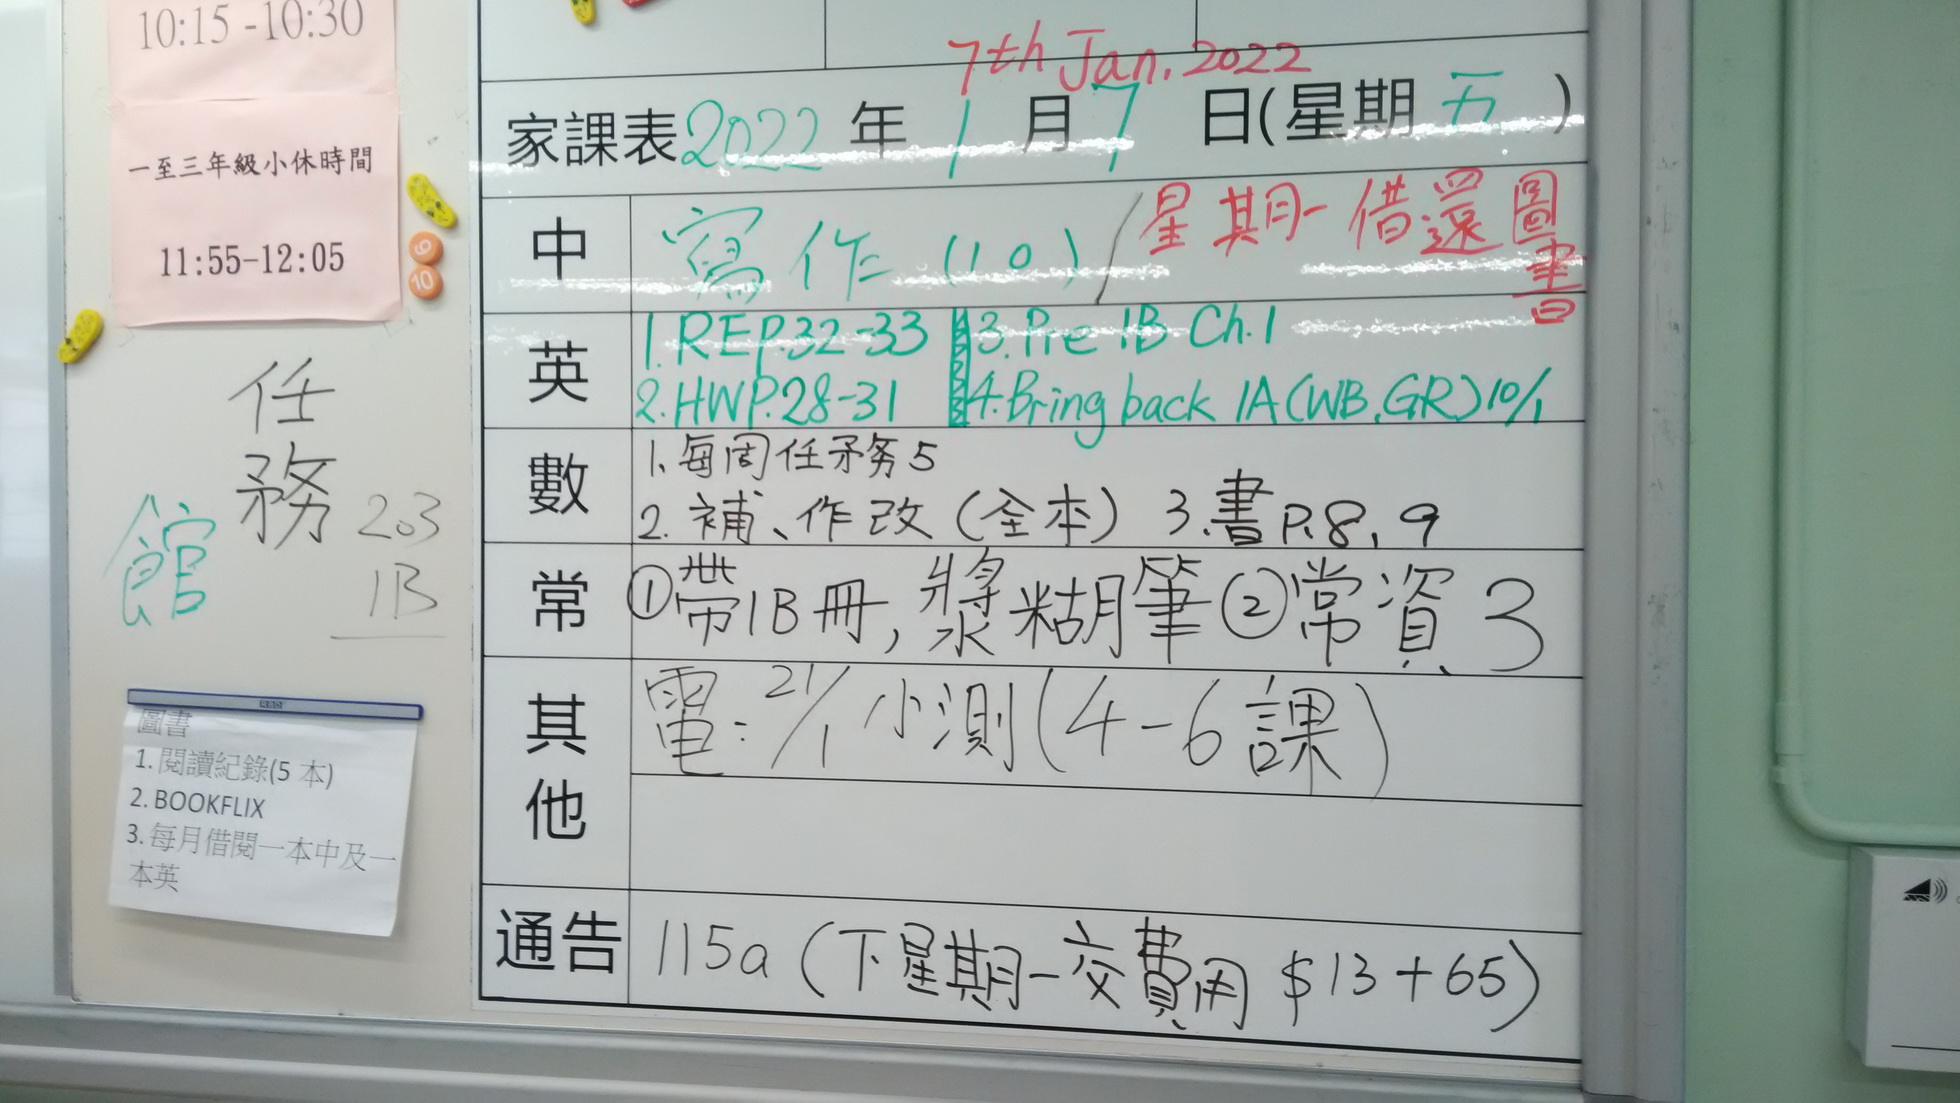 10:15-10:30
一至三年級小休時間
11:55-12:05
9
10
任務
館
203
1B
圖書
1. 閱讀紀錄(5 本)
2. BOOKFLIX
3. 每月借閱一本中及一
本英
7th Jan. 2022
家課表 2022 年 1 月 7 日(星期 五 )
中 寫作(10) / 星期一借還圖書
英 1. REP.32-33 3. Pre 1B Ch.1
2. HWP.28-31 4. Bring back 1A(WB,GR)10/1
數 1. 每周任務5
2. 補、作改(全本) 3.書P.8, 9
常 ①帶1B冊, 漿糊筆②常資3
其他 電: 21/1 小測(4-6課)
通告 115a (下星期一交費用 $13+65)